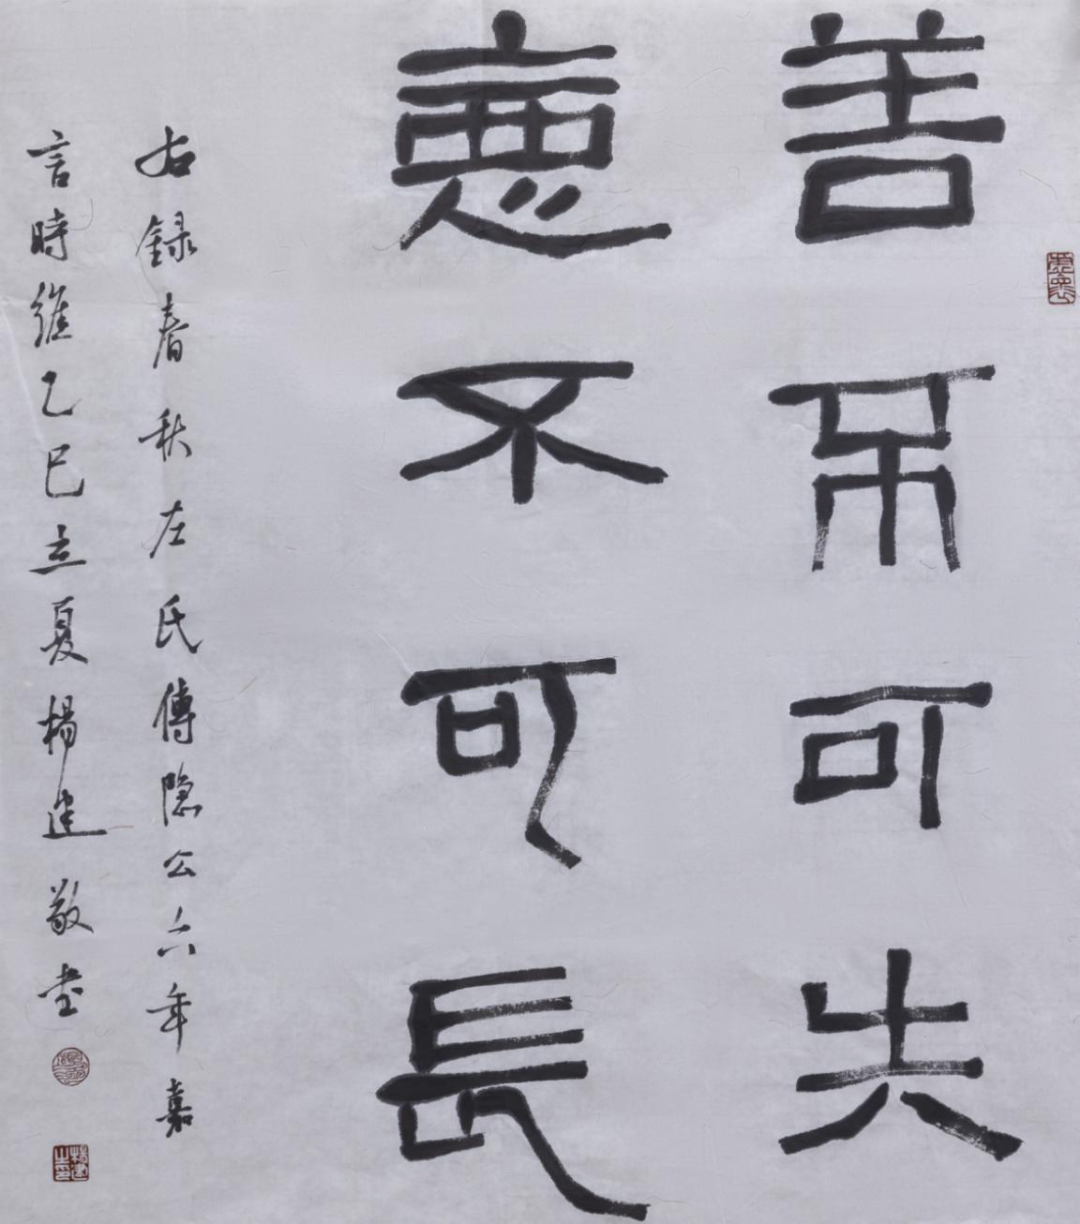 善不可失
惡不可長
右録春秋左氏傳隐公六年嘉
言時維乙巳立夏楊建敬書
楊建之印